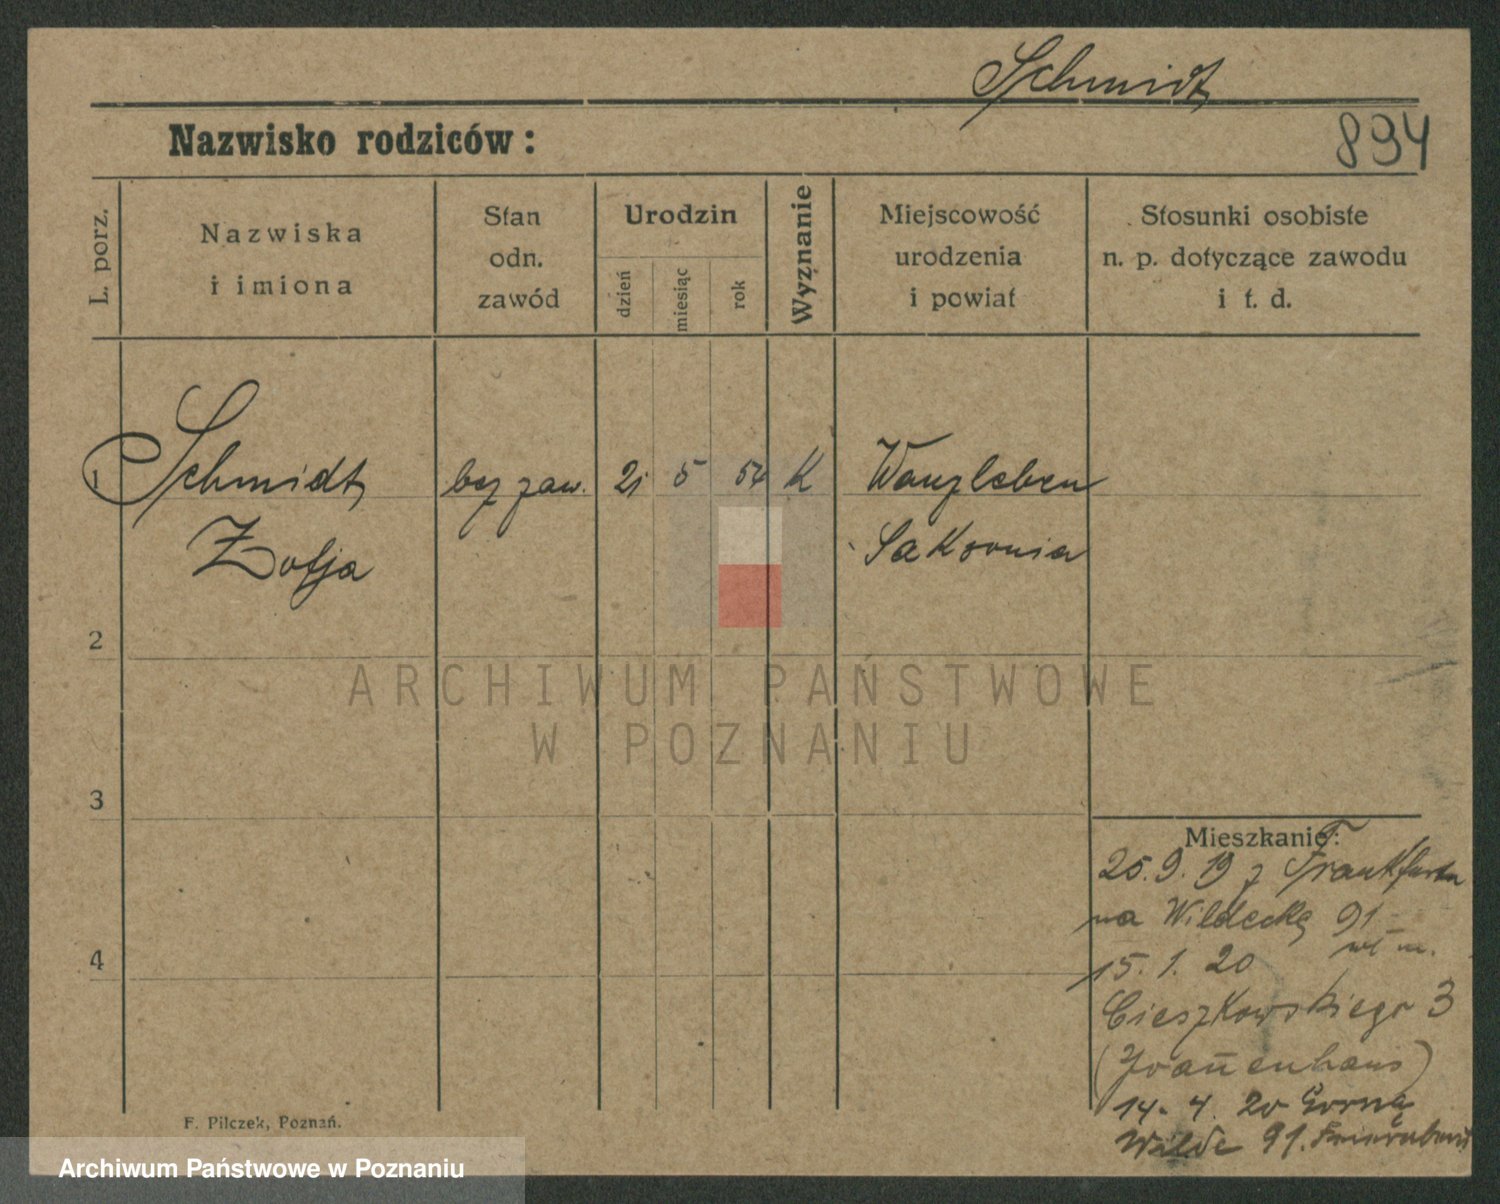 Schmidt
Nazwisko rodziców:
894
L. porz.
Nazwiska
i imiona
Stan
odn.
zawód
Urodzin
dzień
miesiąc
rok
Wyznanie
Miejscowość
urodzenia
i powiat
Stosunki osobiste
n. p. dotyczące zawodu
i t. d.
1
Schmidt
bez zaw.
21
5
54
K
Wanzleben
Zofja
Saksonia
2
ARCHIWUM PAŃSTWOWE
W POZNANIU
3
Mieszkanie:
25.9.19 z Frankfurtu
na Wildecką 91
4
15.1.20
Cieszkowskiego 3
(Joan̄enhaus)
14.4.20 Górną
Wilde 91.
F. Pilczek, Poznań.
Archiwum Państwowe w Poznaniu